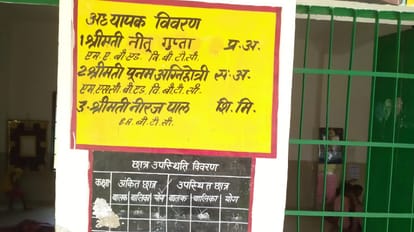 अध्यापक विवरण
1 श्रीमती नीतू गुप्ता प्र. अ.
एम. ए. बी. एड. वि. बी. टी. सी.
2 श्रीमती पूनम अग्निहोत्री स. अ.
एम. एससी. बी. एड. वि. बी. टी. सी.
3. श्रीमती नीरज पाल शि. मि.
बी. टी. सी.
छात्र उपस्थिति विवरण
कक्षा अंकित छात्र उपस्थित छात्र
बालक बालिका योग बालक बालिका योग